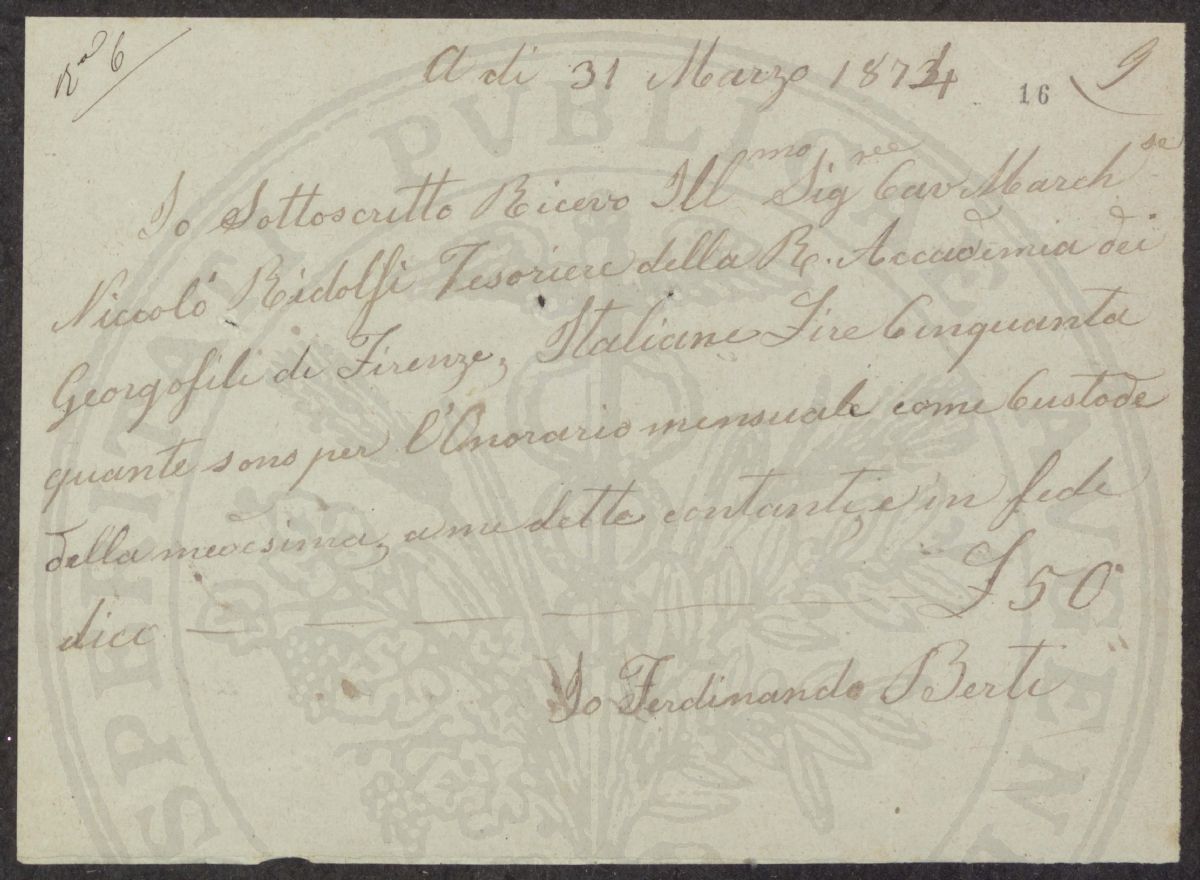 R.ª 6
A di 31 Marzo 1874
16
9
Io Sottoscritto Ricevo Ill.mo Sig.re Cav March.se
Niccolò Ridolfi Tesoriere della R. Accademia dei
Georgofili di Firenze, Italiane Lire Cinquanta
quante sono per l'Onorario mensuale come Custode
della medesima, a me dette contanti, e in fede
dico — — — — — — £ 50
Io Ferdinando Berti
PROSPERITATI PVBLICAE AVGENDAE